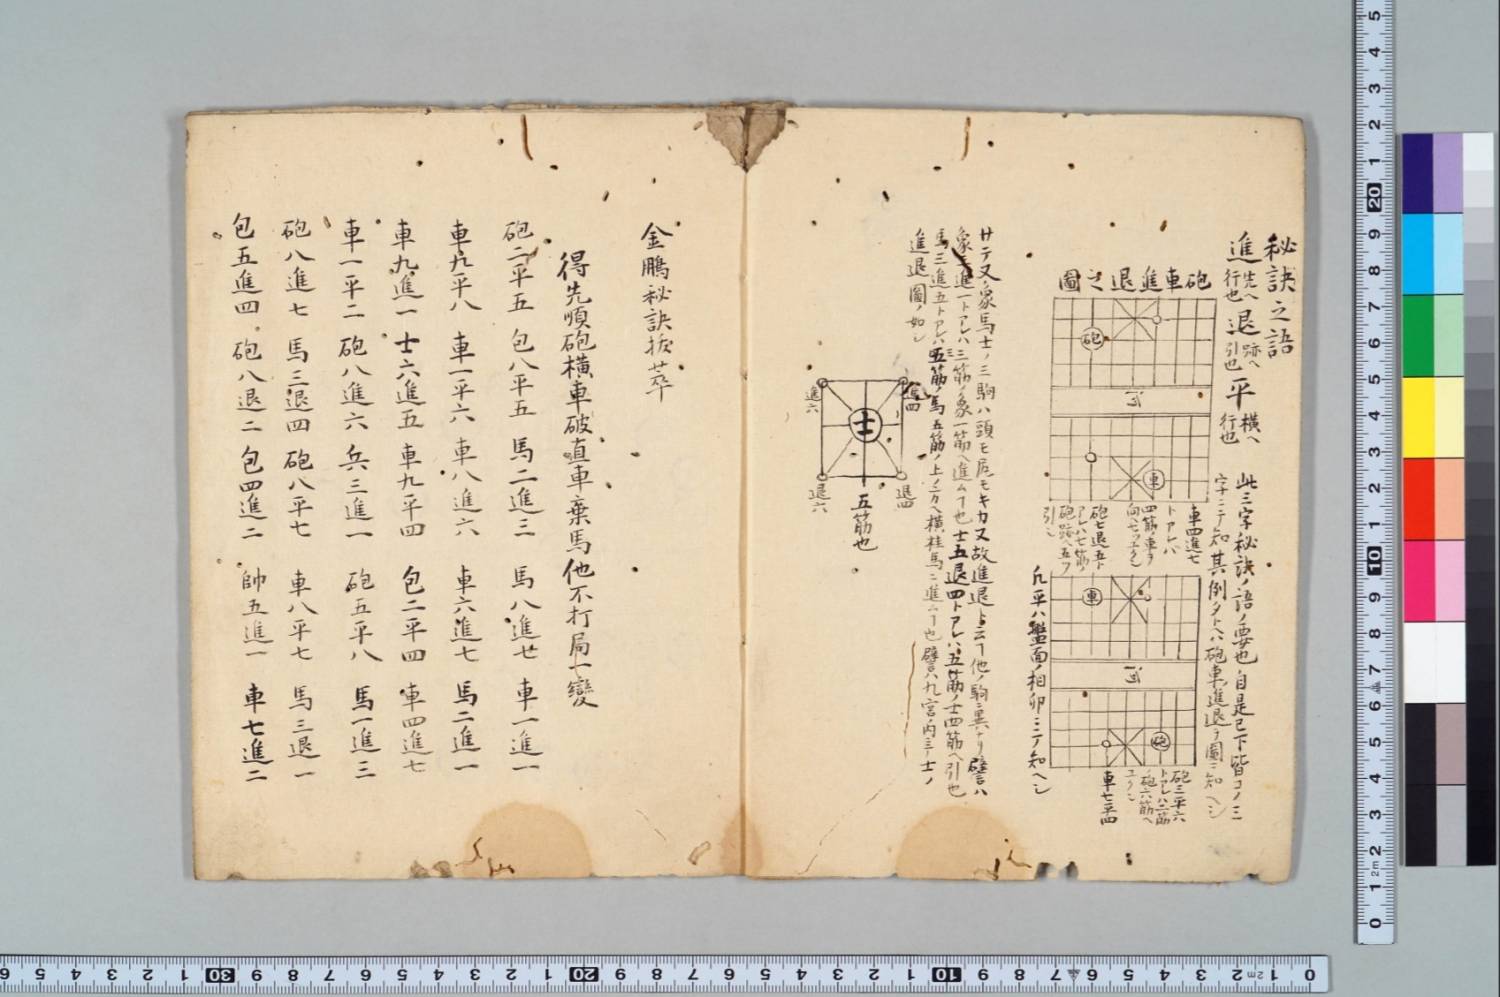 秘訣之語
進 先へ行也 退 跡へ引也 平 横へ行也
此三字秘訣ノ語ノ要也自是已下皆コノ三
字ニテ知 其例タトヘハ砲車進退ヲ圖ニ知ヘシ
砲車進退之圖
砲
河
車
車四進七
トアレハ
四筋ノ車ヲ
向七ツエクヘシ
砲七退五ト
アレハ七筋ノ
砲跡ヘ五ツ
引ヘシ
車
河
砲
砲二平六
トアレハ二筋
砲六筋ヘ
ユクヘシ
車七平四
凡平ハ盤面ノ相卯ニテ知ヘシ
サテ又象馬士ノ三駒ハ頭モ尻モキカ又故進退ト云フ他ノ駒ニ異ナリ譬ハ
象三進一トアレハ三筋ノ象一筋ヘ進ムフ也士五退四トアレハ五筋ノ士四筋ヘ引也
馬三進五トアレハ三筋ノ馬五筋ノ上ノ方ヘ横桂馬ニ進ムフ也譬ハ九宮内ニテ士ノ
進退圖ノ如シ
進四
進六
士
退四
退六
五筋也
金鵬秘訣抜萃
得先順砲横車破直車棄馬他不打局一變
砲二平五 包八平五 馬二進三 馬八進七 車一進一
車九平八 車一平六 車八進六 車六進七 馬二進一
車九進一 士六進五 車九平四 包二平四 車四進七
車一平二 砲八進六 兵三進一 砲五平八 馬一進三
砲八進七 馬三退四 砲八平七 車八平七 馬三退一
包五進四 砲八退二 包四進二 帥五進一 車七進二